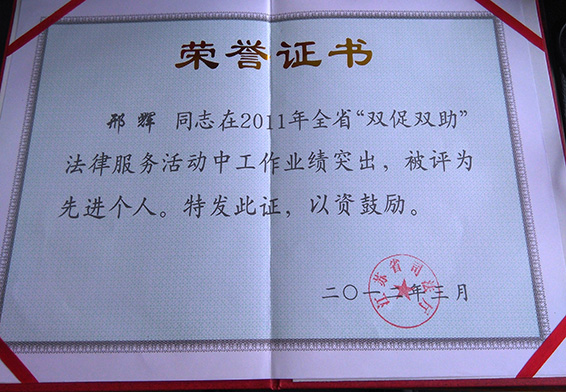 荣誉证书
邢辉 同志在2011年全省“双促双助”
法律服务活动中工作业绩突出，被评为
先进个人。特发此证，以资鼓励。
江苏省司法厅
二〇一二年三月